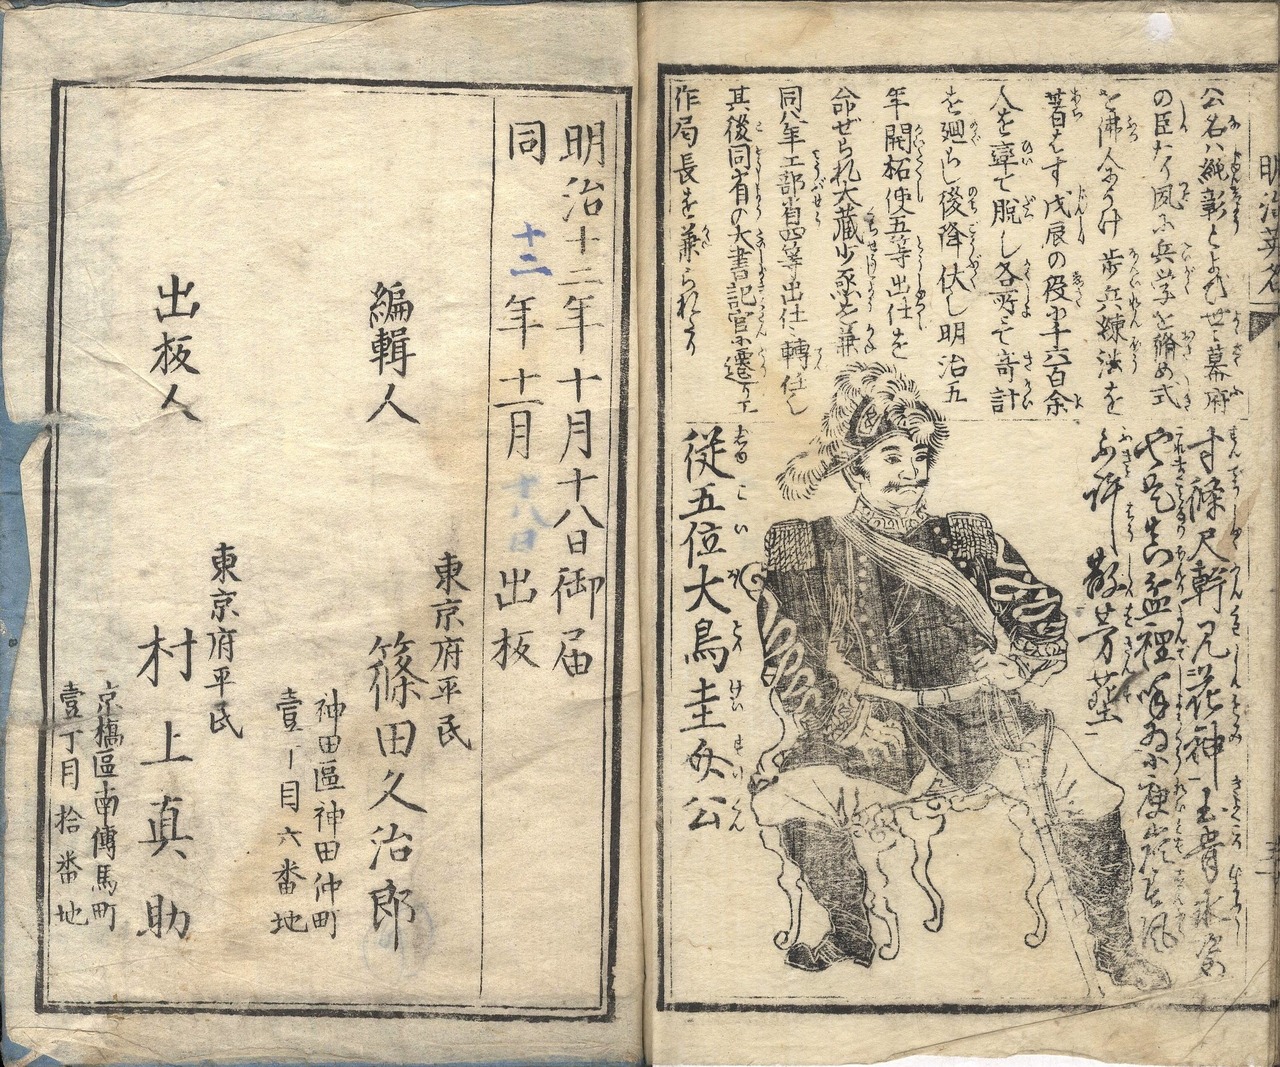 明治英名
公名ハ純彰とよび世々幕府
の臣なり夙に兵学を脩め式
を佛人にうけ歩兵練法を
著はす戊辰の役に千六百余
人を率て脱し各所にて奇計
を廻らし後降伏し明治五
年開拓使五等出仕を
命ぜられ大藏少丞を兼
同八年工部省四等出仕に轉任し
其後同省の大書記官に遷り工
作局長を兼られたり
寸條尺幹見花神玉骨氷姿
不許散芳塵
従五位大鳥圭介公
明治十二年十月十八日御届
同十二年十一月十八日出板
編輯人
東京府平民
篠田久治郎
神田區神田仲町
壹丁目六番地
出板人
東京府平民
村上真助
京橋區南傳馬町
壹丁目拾番地